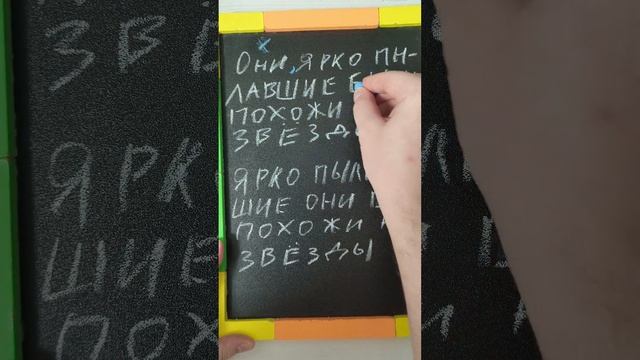 Они, ЯРКО ПЫ-
ЛАВШИЕ
ПОХОЖИ
ЗВЁЗДЫ
ЯРКО ПЫЛ
ШИЕ ОНИ
ПОХОЖИ
ЗВЁЗДЫ